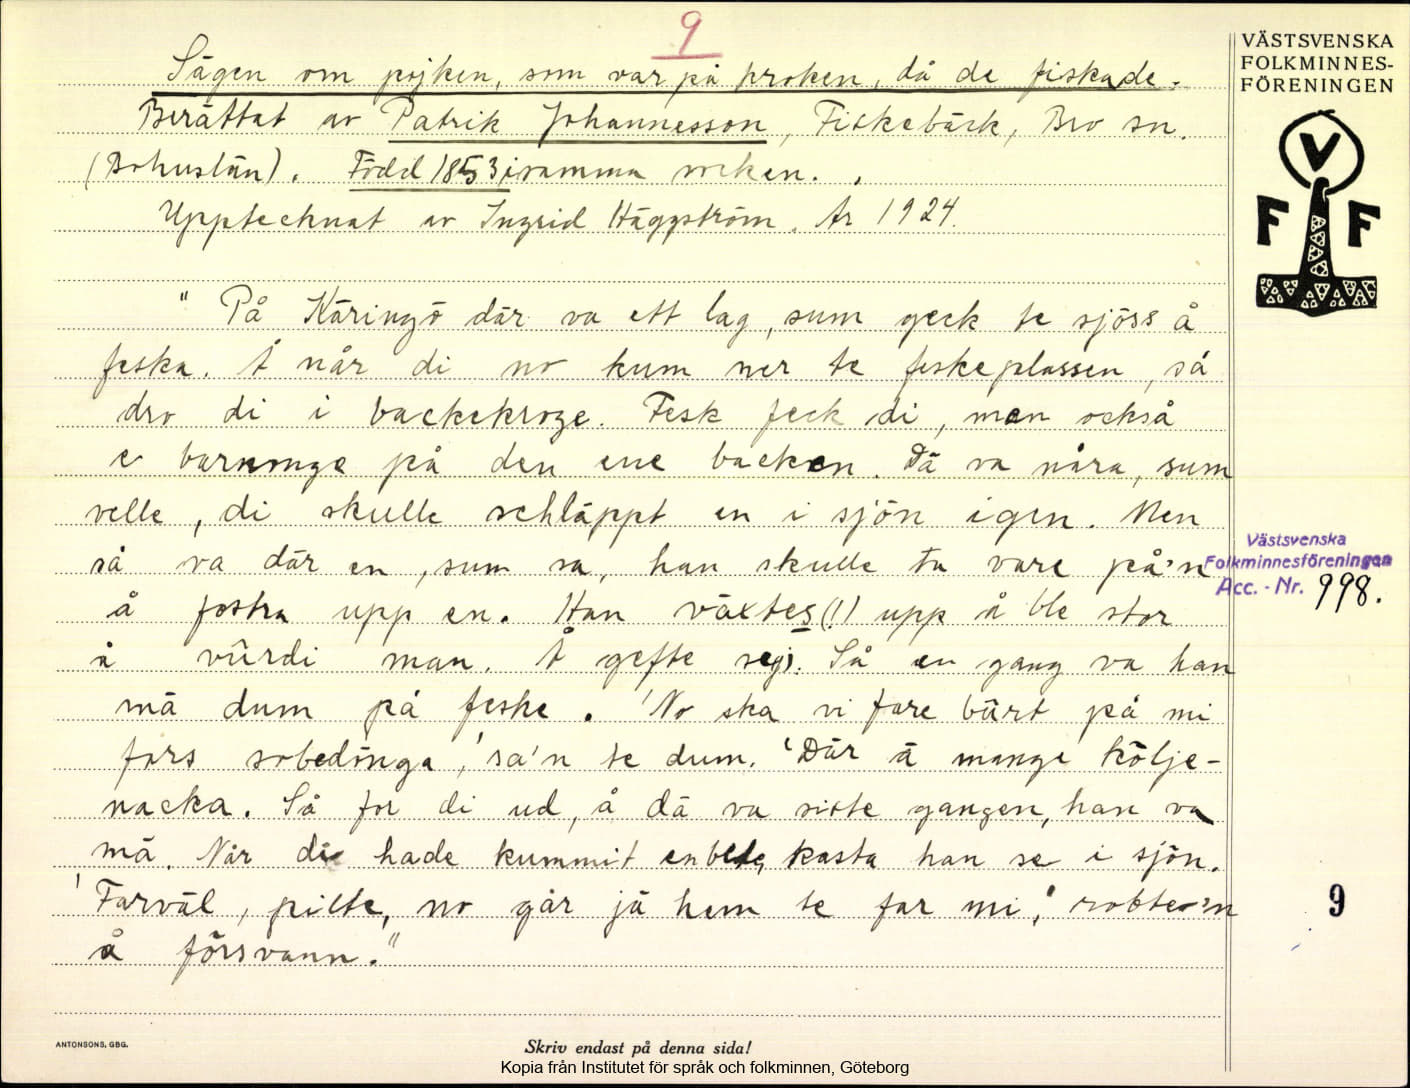 9
Sägen om pojken, som var på kroken, då de fiskade.
Berättat av Patrik Johannesson, Fiskebäck, Bro sn.
(Bohuslän). Född 1853 i samma socken.
Upptecknat av Ingrid Häggström. År 1924.
"På Käringö där va ett lag, sum geck te sjöss å
feska. Å når di no kum ner te feskeplassen, så
dro di i backekroge. Fesk feck di, men också
e barnonge på den ene backen. Dä va nåra, sum
velle, di skulle schläppt en i sjön igen. Men
så va där en, sum sa, han skulle ta vare på'n
å fostra upp en. Han växtes(!) upp å ble stor
å vûrdi man. Å gefte sej. Så en gang va han
mä dum på feske. 'No ska vi fare bûrt på mi
fars sobedönga', sa'n te dum. 'Där ä mange kölje-
nacka. Så for di ud, å dä va siste gangen, han va
mä. Når di hade kummit en bete, kasta han se i sjön.
'Farväl, pilte, no går jä hem te far mi,' robte'n
å försvann."
VÄSTSVENSKA
FOLKMINNES-
FÖRENINGEN
V
F F
Västsvenska
Folkminnesföreningen
Acc.-Nr. 998.
9
ANTONSONS, GBG.
Skriv endast på denna sida!
Kopia från Institutet för språk och folkminnen, Göteborg